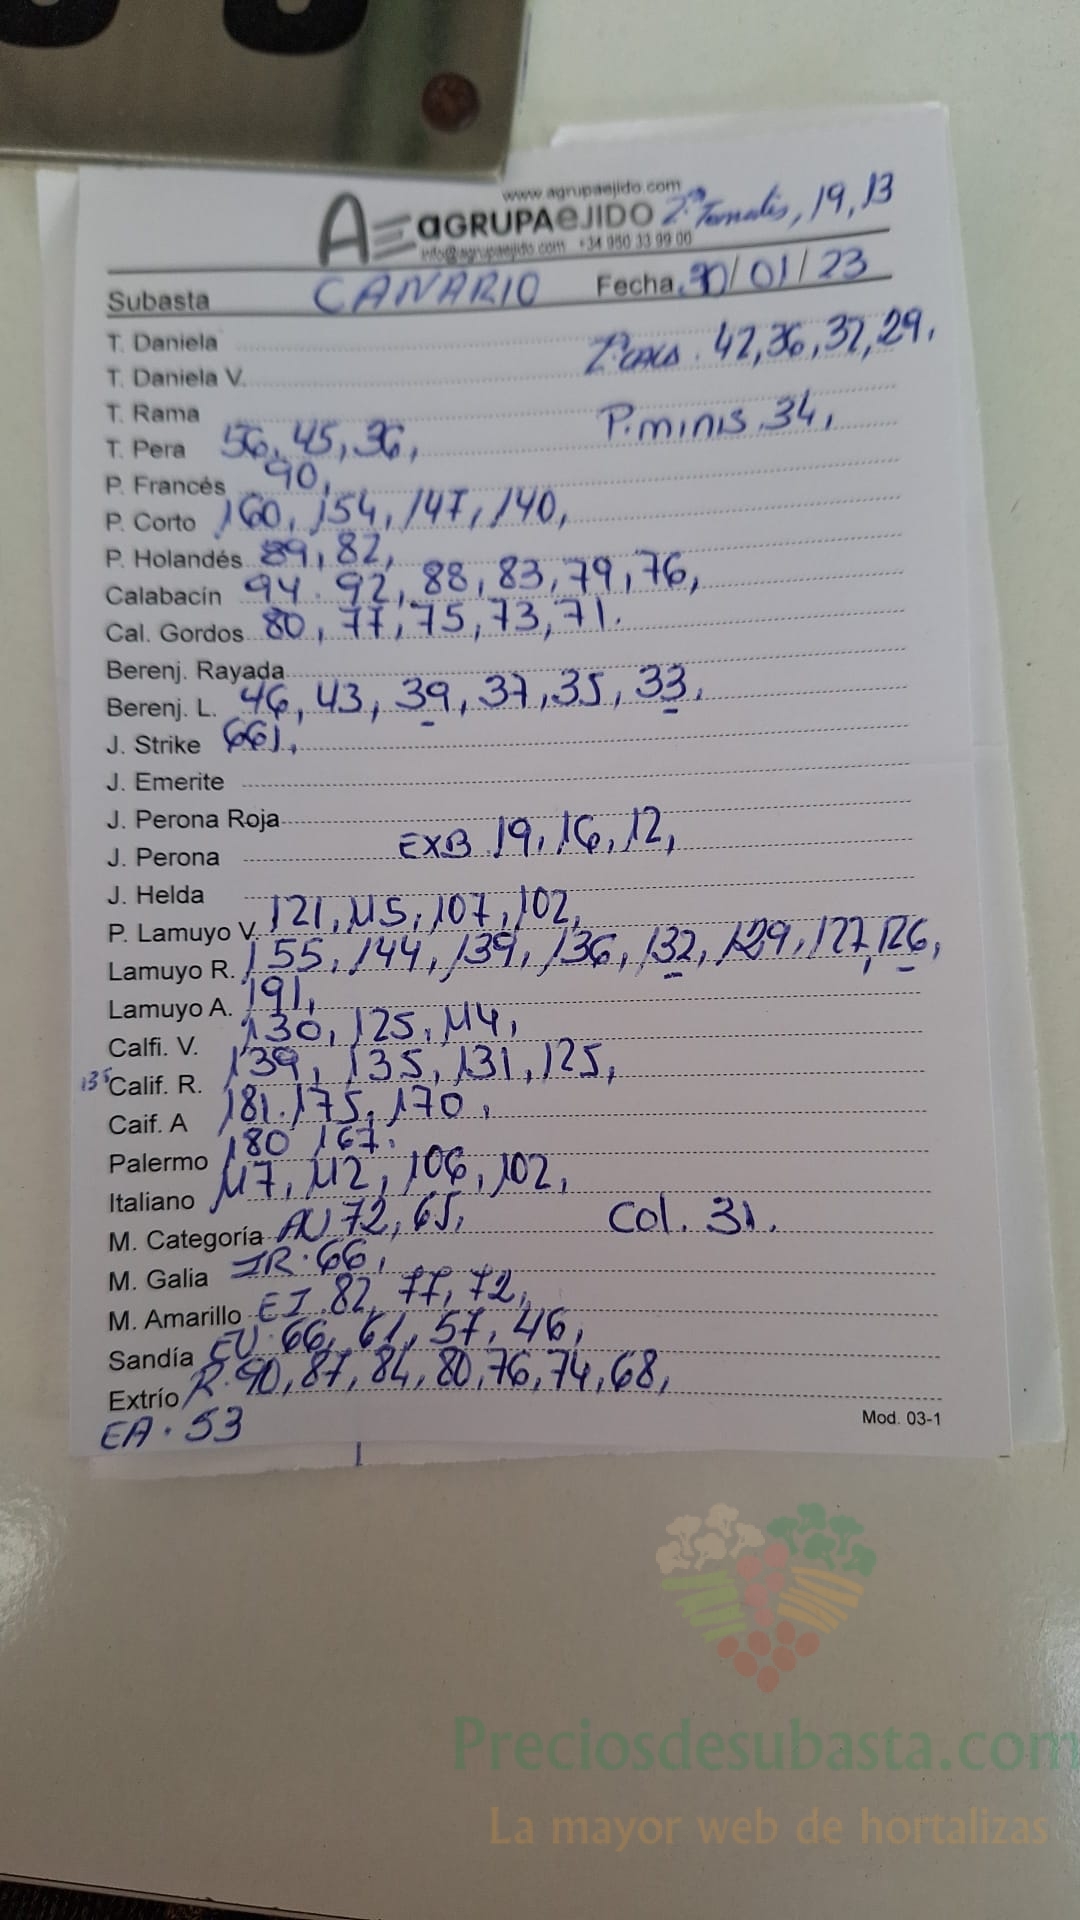 www.agrupaejido.com
AGRUPAEJIDO 2ª Tomates, 19, 13
info@agrupaejido.com +34 950 33 99 00
Subasta CANARIO Fecha 30/01/23
T. Daniela
T. Daniela V. 42, 36, 32, 29,
T. Rama P.minis 34,
T. Pera 56, 45, 36,
P. Francés 90,
P. Corto 160, 154, 147, 140,
P. Holandés 89, 82,
Calabacín 94. 92, 88, 83, 79, 76,
Cal. Gordos 80, 77, 75, 73, 71.
Berenj. Rayada
Berenj. L. 46, 43, 39, 37, 35, 33,
J. Strike 661,
J. Emerite
J. Perona Roja
J. Perona EXB 19, 16, 12,
J. Helda
P. Lamuyo V. 121, 115, 107, 102,
Lamuyo R. 155, 144, 139, 136, 132, 129, 127, 126,
Lamuyo A. 191,
Calfi. V. 130, 125, 114,
135 Calif. R. 139, 135, 131, 125,
Caif. A 181. 175, 170,
Palermo 180 167.
Italiano 117, 112, 106, 102,
M. Categoría AU 72, 65, Col. 31.
M. Galia IR. 66,
M. Amarillo EI. 82, 77, 72,
Sandía EV. 66, 61, 57, 46,
Extrío R. 90, 87, 84, 80, 76, 74, 68,
EA. 53
Mod. 03-1
Preciosdesubasta.com
La mayor web de hortalizas